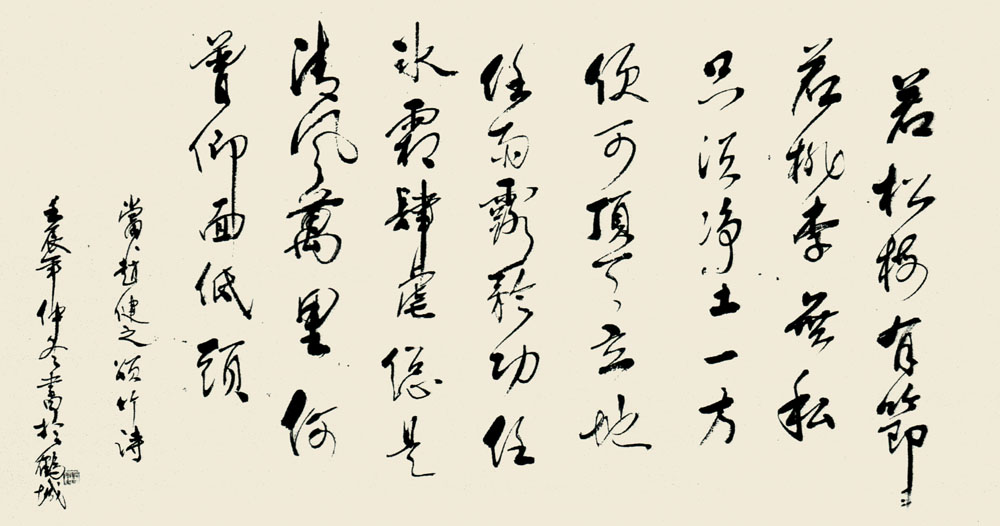 若松梅有節
若桃李無私
只須淨土一方
便可頂天立地
任雨露矜功任
冰霜肆虐總是
清風萬里何
曾仰面低頭
當趙健之頌竹詩
壬辰年仲冬書於鶴城